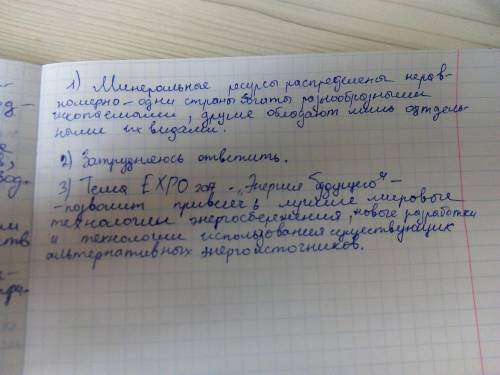 1) Минеральные ресурсы распределены нерав-
номерно - одни страны богаты разнообразными
ископаемыми, другие обладают лишь отдель-
ными их видами.
2) Затрудняюсь ответить.
3) Тема EXPO „Энергия будущего" -
- позволит привлечь лучшие мировые
технологии энергосбережения, новые разработки
и технологии использования существующих
альтернативных энергоисточников.